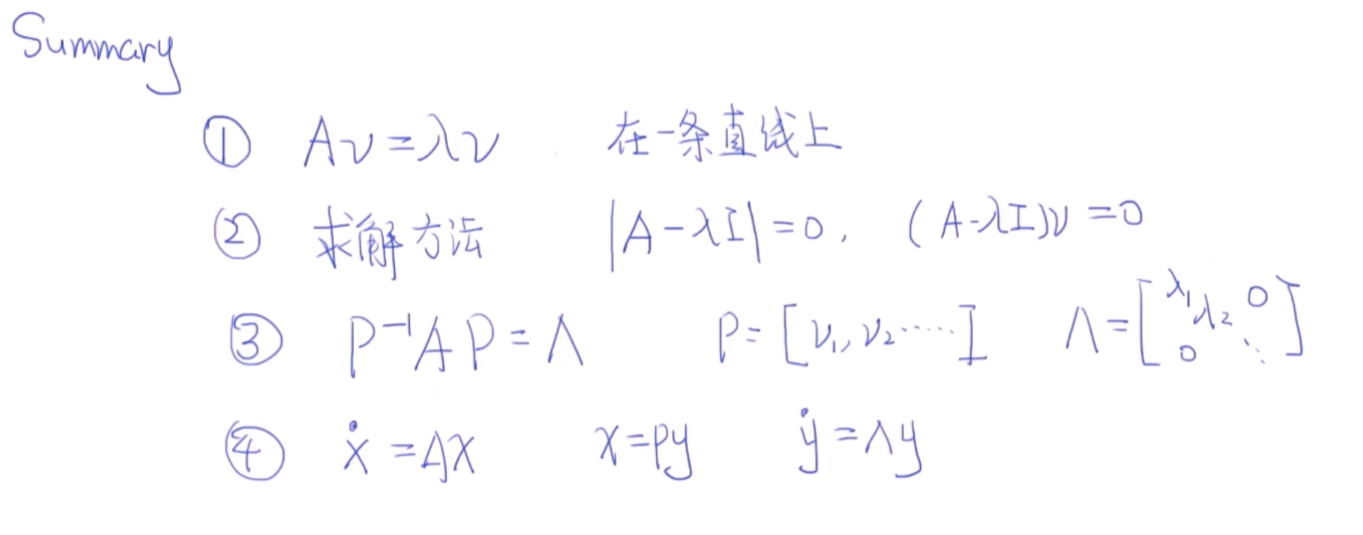 Summary
① Aν=λν 在一条直线上
② 求解方法 |A-λI|=0, (A-λI)ν=0
③ P⁻¹AP=Λ P=[ν₁, ν₂……] Λ=[λ₁ λ₂ 0 0 ⋱]
④ ẋ=AX x=Py ẏ=Λy